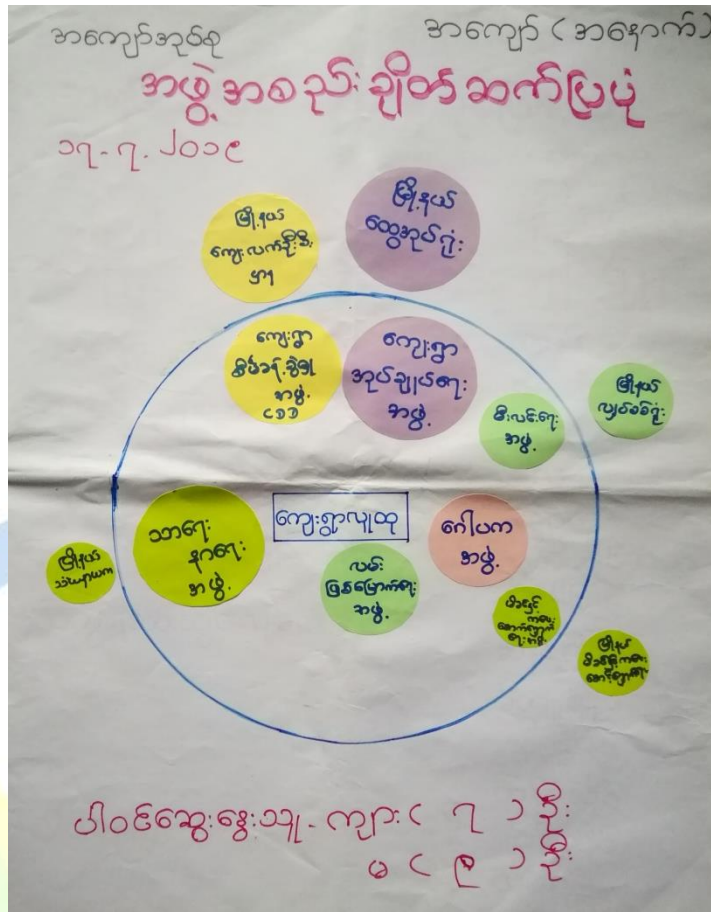 အကျော်အုပ်စု
အကျော် (အနောက်)
အဖွဲ့အစည်းချိတ်ဆက်ပြပုံ
၁၇-၇-၂၀၁၉
မြို့နယ်
ကျေးလက်ဦးစီး
ဌာန
မြို့နယ်
ထွေအုပ်ရုံး
ကျေးရွာ
စီမံခန့်ခွဲမှု
အဖွဲ့
CDD
ကျေးရွာ
အုပ်ချုပ်ရေး
အဖွဲ့
မီးလင်းရေး
အဖွဲ့
မြို့နယ်
လျှပ်စစ်ရုံး
သာရေး
နာရေး
အဖွဲ့
ကျေးရွာလူထု
ဂေါပက
အဖွဲ့
မြို့နယ်
သံဃနာယက
လမ်း
ဖြစ်မြောက်ရေး
အဖွဲ့
မိခင်နှင့်
ကလေး
စောင့်ရှောက်
ရေးအဖွဲ့
မြို့နယ်
မိခင်နှင့်ကလေး
စောင့်ရှောက်ရေး
ပါဝင်ဆွေးနွေးသူ-ကျား ( ၇ ) ဦး
မ ( ၉ ) ဦး